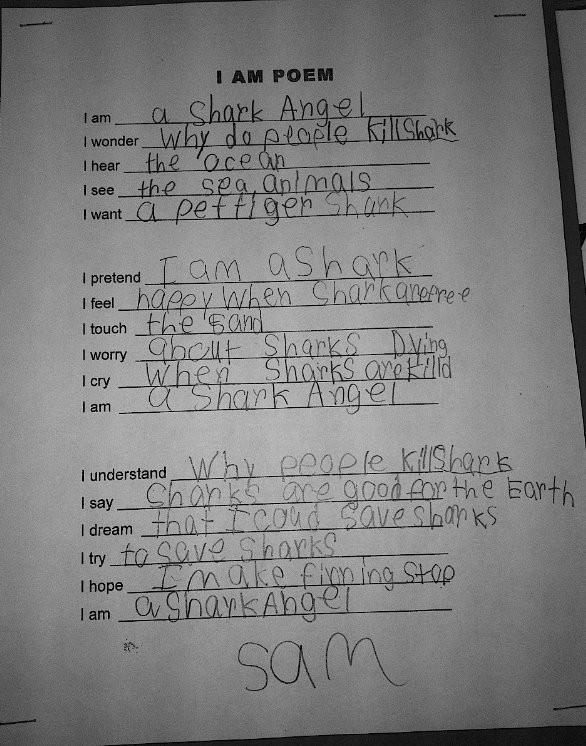 I AM POEM
I am a Shark Angel
I wonder why do people killShark
I hear the ocean
I see the sea animals
I want a pet tiger Shark
I pretend I am a Shark
I feel happy when Shark arefree
I touch the sand
I worry about Sharks Dying
I cry when Sharks are killd
I am a Shark Angel
I understand Why people killShark
I say Sharks are good for the Earth
I dream that I coud Save sharks
I try to save Sharks
I hope I make finning stop
I am a Shark Angel
Sam